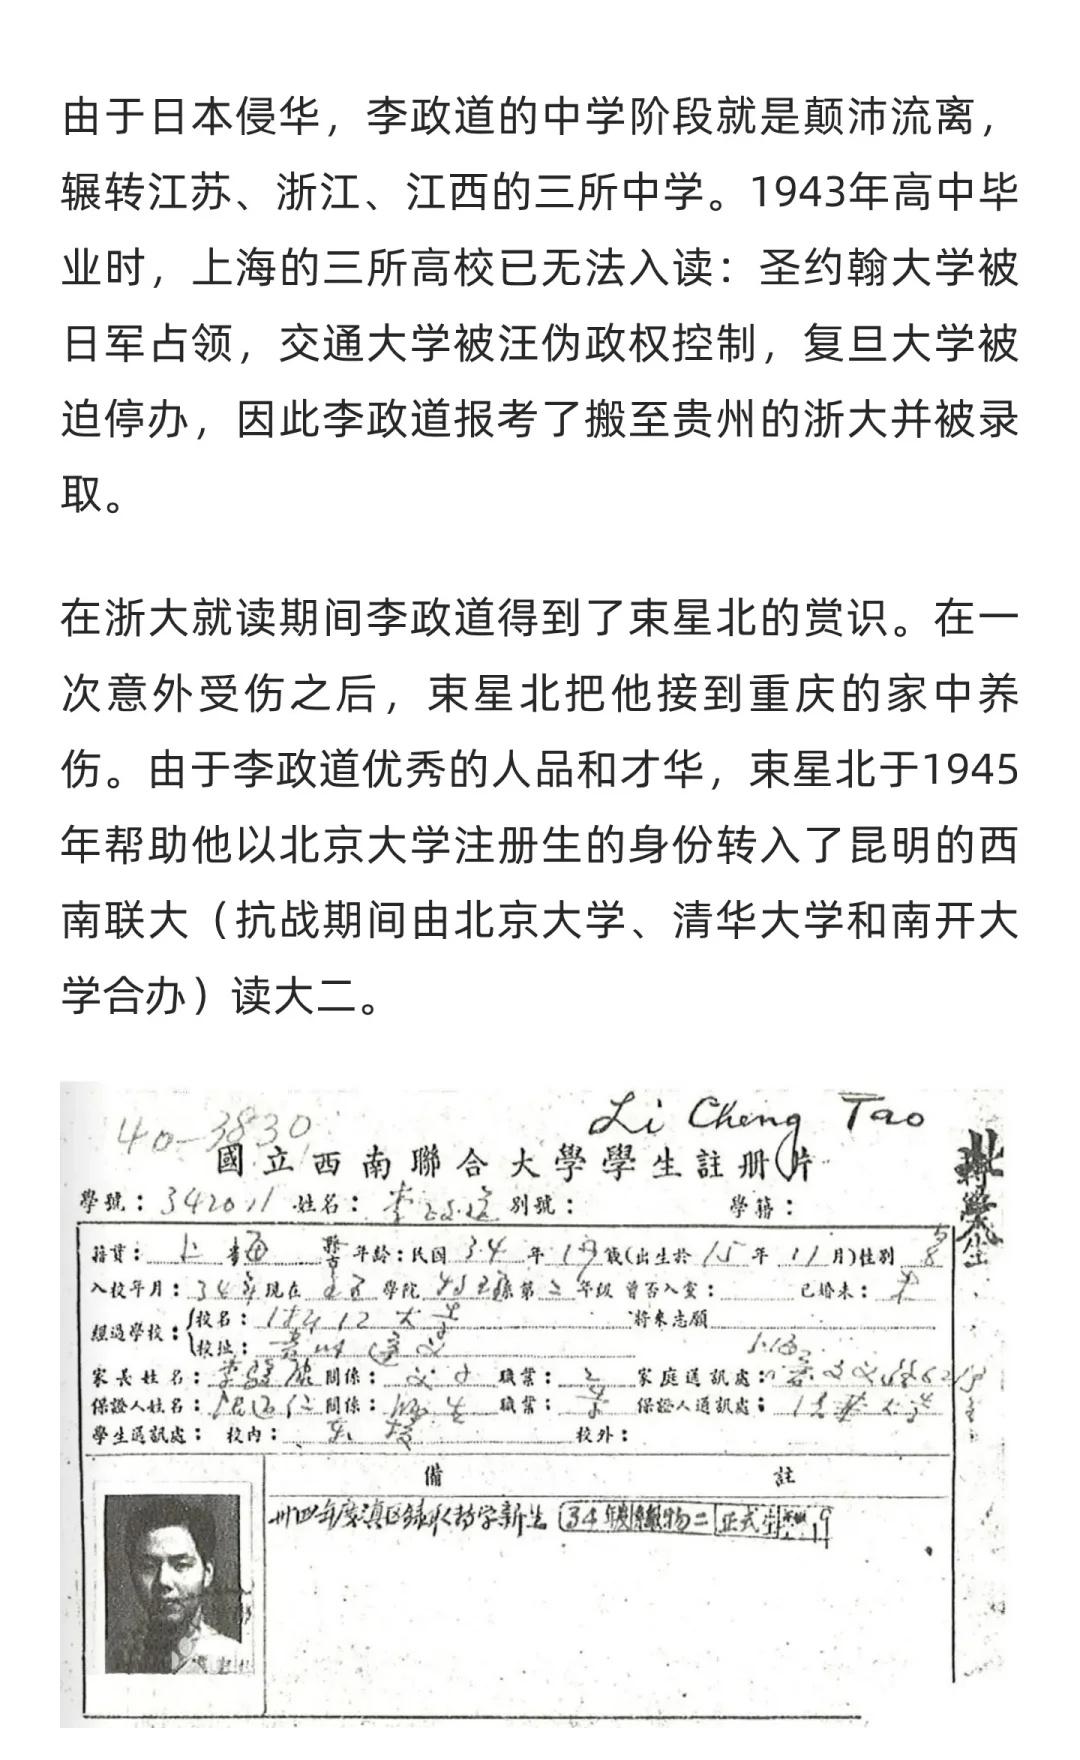 由于日本侵华，李政道的中学阶段就是颠沛流离，
辗转江苏、浙江、江西的三所中学。1943年高中毕
业时，上海的三所高校已无法入读：圣约翰大学被
日军占领，交通大学被汪伪政权控制，复旦大学被
迫停办，因此李政道报考了搬至贵州的浙大并被录
取。
在浙大就读期间李政道得到了束星北的赏识。在一
次意外受伤之后，束星北把他接到重庆的家中养
伤。由于李政道优秀的人品和才华，束星北于1945
年帮助他以北京大学注册生的身份转入了昆明的西
南联大（抗战期间由北京大学、清华大学和南开大
学合办）读大二。
40-3830
Li Cheng Tao
國立西南聯合大學學生註册片
學號：342011 姓名：李政道 別號： 學籍：
籍貫：上海 縣市 年齡：民国34年19歲(出生於15年11月)性別
入校年月：34年 現在 學院 系第二年級 曾否入黨： 已婚未：未
經過學校：校名：浙江大学
將來志願
校址：貴州遵义
家長姓名：李 關係：父子 職業： 家庭通訊處：
保證人姓名： 關係：師生 職業： 保證人通訊處：
學生通訊處：校内： 校外：
備 註
卅四年度滇区錄取轉学新生 34年 物二 正式生